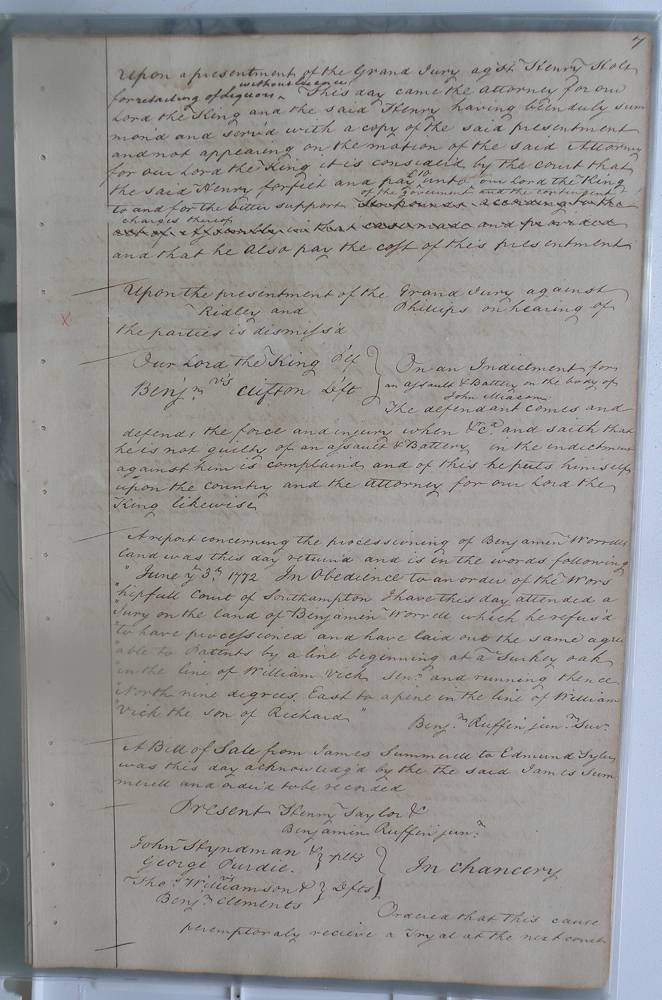 7
Upon a presentment of the Grand Jury agst Henry Holt
without licence
for retailing of liquors This day came the attorney for our
Lord the King and the said Henry having been duly sum
mon'd and serv'd with a copy of the said presentment
and not appearing on the motion of the said Attorney
for our Lord the King it is consider'd by the court that
£10
the said Henry forfeit and pay unto our Lord the King
of the government and the contingent
to and for the better support ten pounds according to the
charges thereof
act of assembly in that case made and provided
and that he also pay the cost of this presentment
Upon the presentment of the Grand Jury against
Ridley and Phillips on hearing of
the parties is dismiss'd
X
Our Lord the King Plf } On an Indictment for
an assault & Battery on the body of
vs
Benjn Clifton Dft
John
The defendant comes and
defends the force and injury when &ca and saith that
he is not guilty of an assault & Battery in the indictment
against him is complaind and of this he puts himself
upon the country and the attorney for our Lord the
King likewise
A report concerning the processioning of Benjamin Worrells
land was this day return'd and is in the words following
" June ye 3th 1772 In Obedience to an order of the Wors
"hipfull Court of Southampton I have this day attended a
"Jury on the land of Benjamin Worrell which he refus'd
"to have processioned and have laid out the same agre
"able to Patents by a line beginning at a Turkey oak
"in the line of William Vick Senr and running thence
"North nine degrees East to a pine in the line of William
"Vick the son of Richard "
Benjn Ruffin junr Sur
A Bill of Sale from James Summerell to Edmund Tyler
was this day acknowledg'd by the the said James Sum
merell and order'd to be recorded
Present Henry Taylor &
Benjamin Ruffin junr
John Hyndman & } plts }
George Purdie.
vs
In Chancery
Thos Williamson & } Dfts
Benjn Clements
Ordered that this cause
peremptoraly recieve a Tryal at the next court